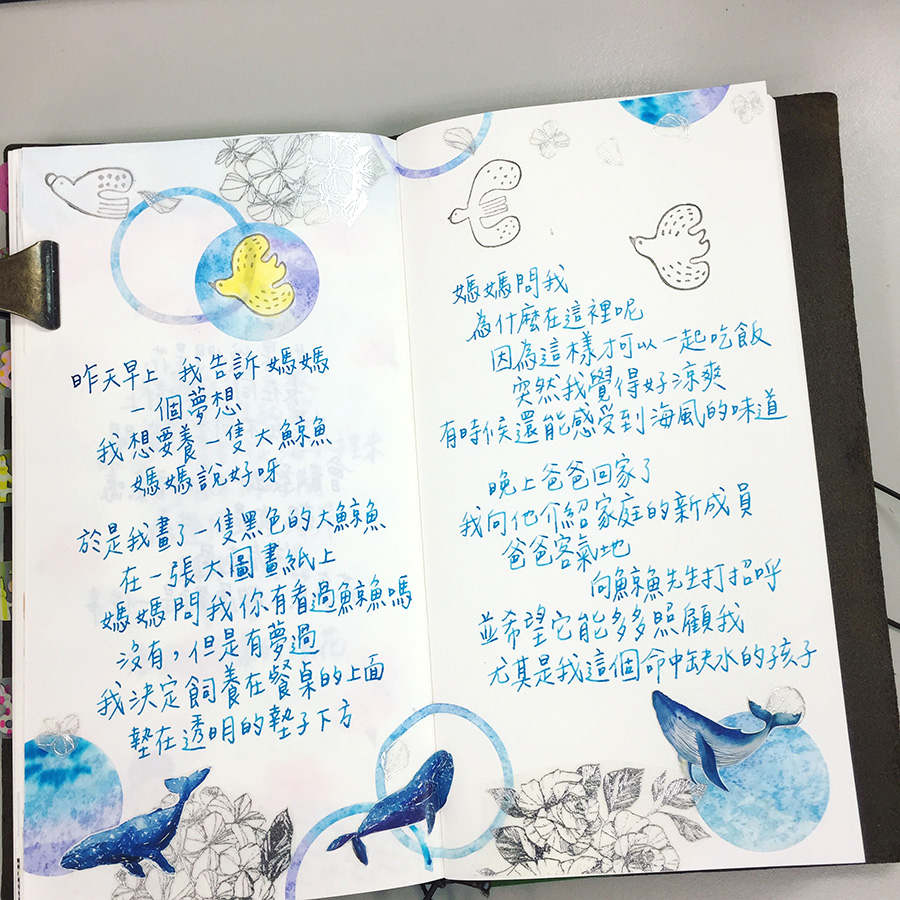 昨天早上 我告訴媽媽
一個夢想
我想要養一隻大鯨魚
媽媽說好呀
於是我畫了一隻黑色的大鯨魚
在一張大圖畫紙上
媽媽問我你有看過鯨魚嗎
沒有，但是有夢過
我決定飼養在餐桌的上面
墊在透明的墊子下方
媽媽問我
為什麼在這裡呢
因為這樣才可以一起吃飯
突然我覺得好涼爽
有時候還能感受到海風的味道
晚上爸爸回家了
我向他介紹家庭的新成員
爸爸客氣地
向鯨魚先生打招呼
並希望它能多多照顧我
尤其是我這個命中缺水的孩子